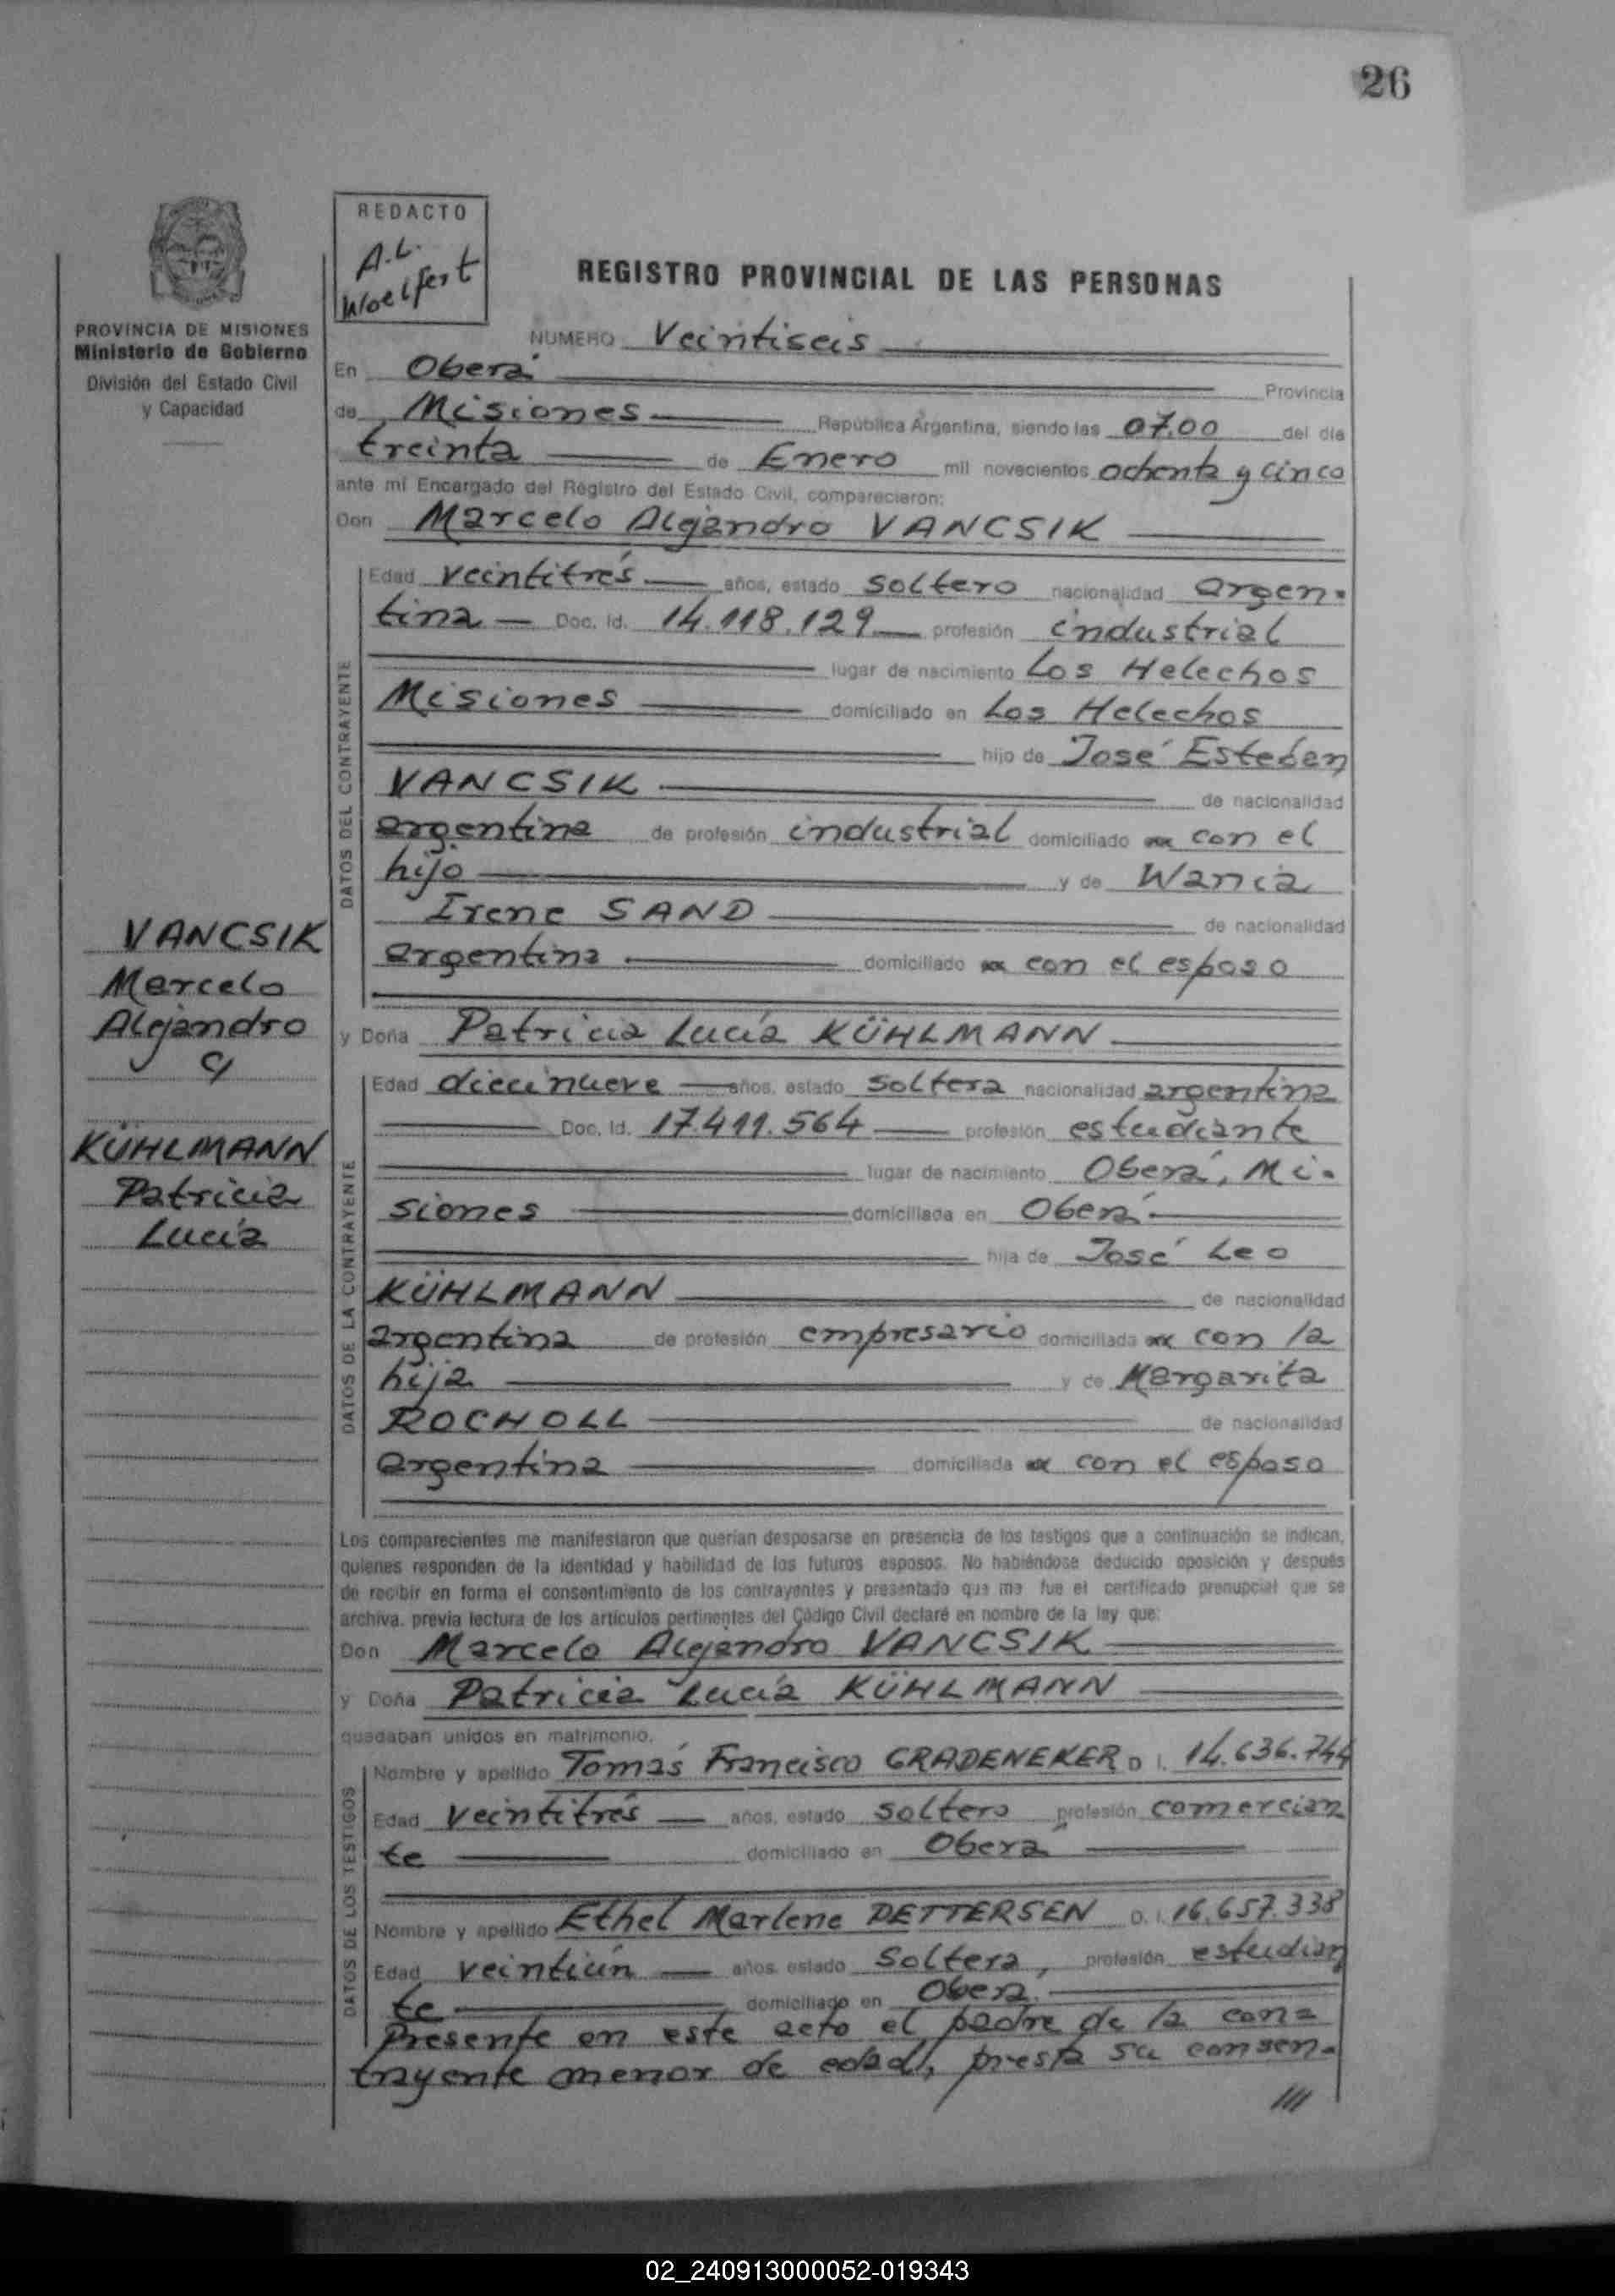 26
REDACTO
A.L.
Woelfert
REGISTRO PROVINCIAL DE LAS PERSONAS
PROVINCIA DE MISIONES
Ministerio de Gobierno
División del Estado Civil
y Capacidad
NUMERO Veintiseis
En Oberá Provincia
de Misiones República Argentina, siendo las 07.00 del día
treinta de Enero mil novecientos ochenta y cinco
ante mí Encargado del Registro del Estado Civil, comparecieron:
Don Marcelo Alejandro VANCSIK
DATOS DEL CONTRAYENTE
Edad veintitrés años, estado soltero nacionalidad argen-
tina Doc. Id. 14.118.129 profesión industrial
lugar de nacimiento Los Helechos
Misiones domiciliado en Los Helechos
hijo de José Esteban
VANCSIK de nacionalidad
argentina de profesión industrial domiciliado con el
hijo y de Wania
Irene SAND de nacionalidad
argentina domiciliado con el esposo
VANCSIK
Marcelo
Alejandro
y
KÜHLMANN
Patricia
Lucía
y Doña Patricia Lucía KÜHLMANN
DATOS DE LA CONTRAYENTE
Edad diecinueve años, estado soltera nacionalidad argentina
Doc. Id. 17.411.564 profesión estudiante
lugar de nacimiento Oberá, Mi-
siones domiciliada en Oberá
hija de José Leo
KÜHLMANN de nacionalidad
argentina de profesión empresario domiciliada con la
hija y de Margarita
ROCHOLL de nacionalidad
argentina domiciliada con el esposo
Los comparecientes me manifestaron que querían desposarse en presencia de los testigos que a continuación se indican,
quienes responden de la identidad y habilidad de los futuros esposos. No habiéndose deducido oposición y después
de recibir en forma el consentimiento de los contrayentes y presentado que me fue el certificado prenupcial que se
archiva, previa lectura de los artículos pertinentes del Código Civil declaré en nombre de la ley que:
Don Marcelo Alejandro VANCSIK
y Doña Patricia Lucía KÜHLMANN
quedaban unidos en matrimonio.
DATOS DE LOS TESTIGOS
Nombre y apellido Tomás Francisco GRADENEKER D. I. 14.636.744
Edad veintitrés años, estado soltero profesión comercian
te domiciliado en Oberá
Nombre y apellido Ethel Marlene PETTERSEN D. I. 16.657.338
Edad veintiún años estado soltera, profesión estudian
te domiciliado en Oberá
Presente en este acto el padre de la con=
trayente menor de edad, presta su consen-
///
02_240913000052-019343